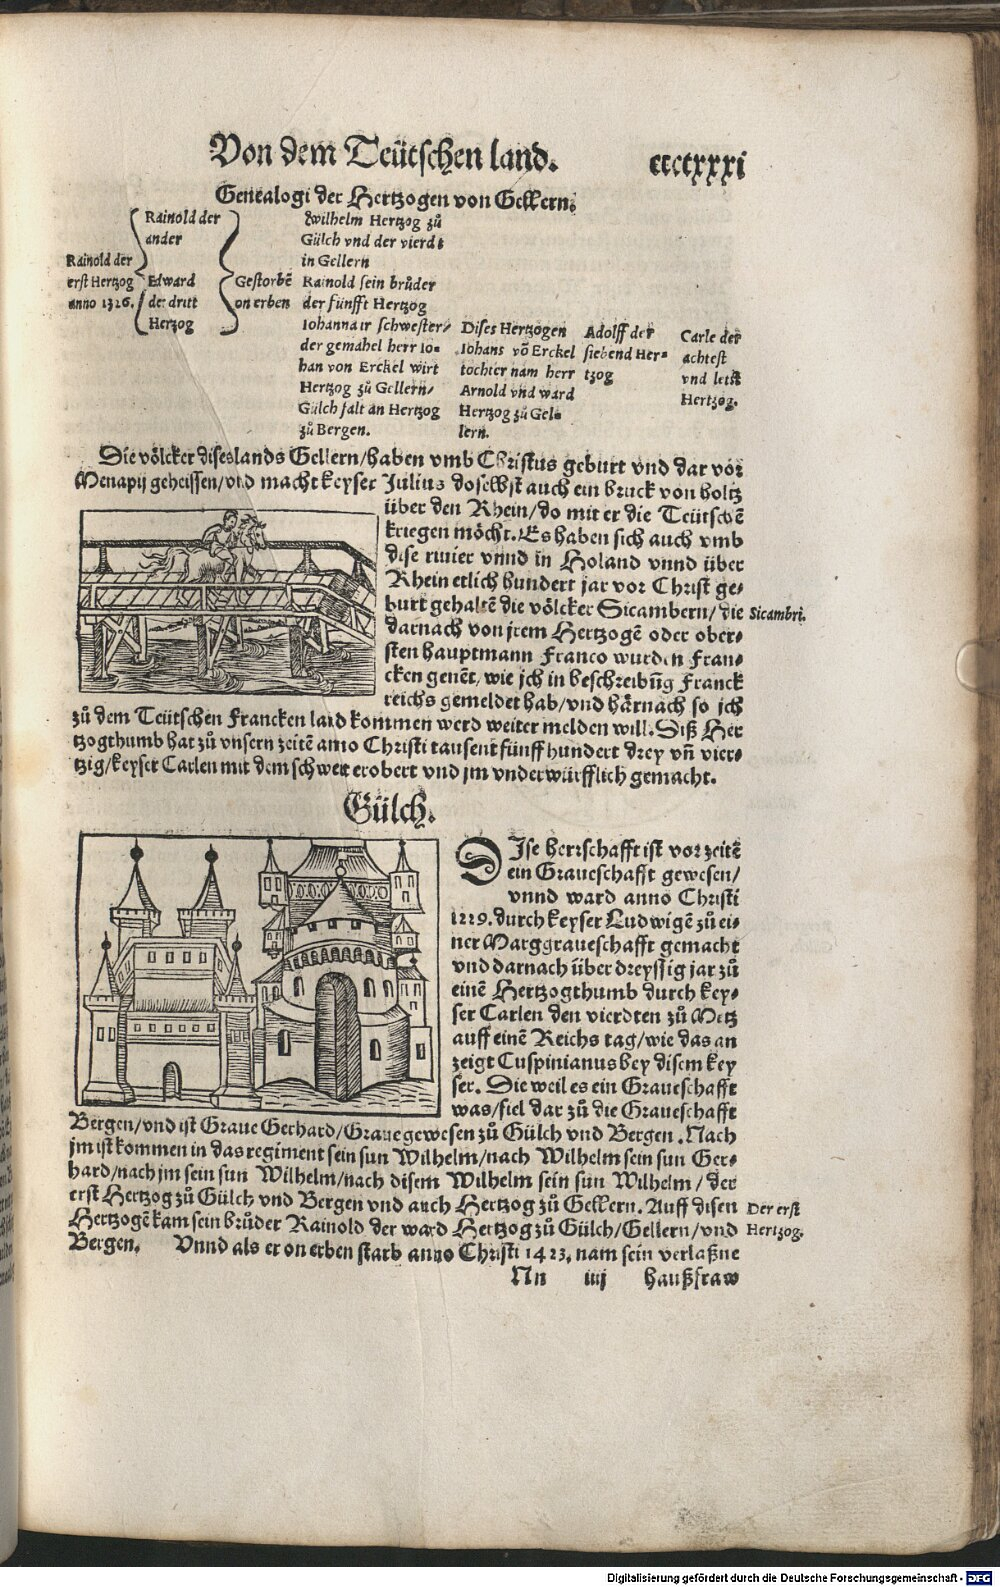 Von dem Teütschen land. ccccxxxi
Genealogi der Hertzogen von Gellern.
Rainold der
erst Hertzog
anno 1326.
Rainold der
ander
Edward
der dritt
Hertzog
Gestorbē
on erben
Wilhelm Hertzog zů
Gülch vnd der vierdt
in Gellern
Rainold sein brůder
der fünfft Hertzog
Iohanna ir schwester/
der gemahel herr Io-
han von Erckel wirt
Hertzog zů Gellern/
Gülch falt an Hertzog
zů Bergen.
Dises Hertzogen
Iohans vō Erckel
tochter nam herr
Arnold vnd ward
Hertzog zů Gel-
lern.
Adolff der
siebend Her-
tzog
Carle der
achtest
vnd letst
Hertzog.
Die völcker dises lands Gellern/haben vmb Christus geburt vnd dar vor
Menapij geheissen/vnd macht keyser Julius doselbst auch ein bruck von holtz
über den Rhein/do mit er die Teütschē
kriegen möcht. Es haben sich auch vmb
dise riuier vnnd in Holand vnnd über
Rhein etlich hundert jar vor Christ ge-
burt gehaltē die völcker Sicambern/die
Sicambri.
darnach von jrem Hertzogē oder ober-
sten hauptmann Franco wurden Fran-
cken genēt, wie jch in beschreibūg Franck
reichs gemeldet hab/vnd härnach so jch
zů dem Teütschen Francken land kommen werd weiter melden will. Diß Her
tzogthumb hat zů vnsern zeitē anno Christi tausent fünff hundert drey vñ vier-
tzig/keyser Carlen mit dem schwert erobert vnd jm vnderwürfflich gemacht.
Gülch.
DIse herrschafft ist vor zeitē
ein Graueschafft gewesen/
vnnd ward anno Christi
1329. durch keyser Ludwigē zů ei-
ner Marggraueschafft gemacht
vnd darnach über dreyssig jar zů
einē Hertzogthumb durch key-
ser Carlen den vierdten zů Metz
auff einē Reichs tag/wie das an
zeigt Cuspinianus bey disem key
ser. Die weil es ein Graueschafft
was/fiel dar zů die Graueschafft
Bergen/vnd ist Graue Gerhard/Graue gewesen zů Gülch vnd Bergen. Nach
jm ist kommen in das regiment sein sun Wilhelm/nach Wilhelm sein sun Ger-
hard/nach jm sein sun Wilhelm/nach disem Wilhelm sein sun Wilhelm/der
erst Hertzog zů Gülch vnd Bergen vnd auch Hertzog zů Gellern. Auff disen
Der erst
Hertzog.
Hertzogē kam sein brůder Rainold der ward Hertzog zů Gülch/Gellern/vnd
Bergen. Vnnd als er on erben starb anno Christi 1423. nam sein verlaßne
Nn iiij haußfraw
Digitalisierung gefördert durch die Deutsche Forschungsgemeinschaft - DFG